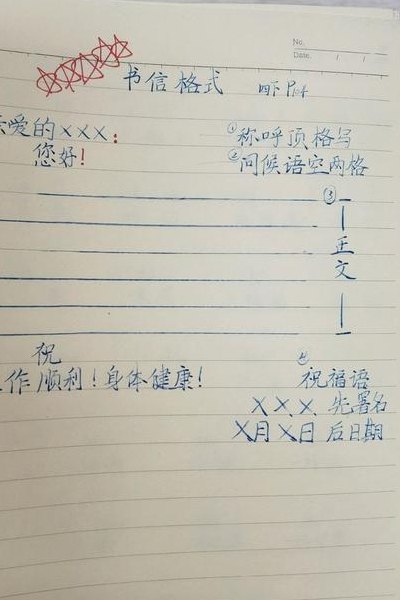 No.
Date. / /
书信格式 四下P64
亲爱的×××：
①称呼顶格写
您好！
②问候语空两格
③
正文
祝
④
工作顺利！身体健康！
祝福语
×××先署名
×月×日 后日期